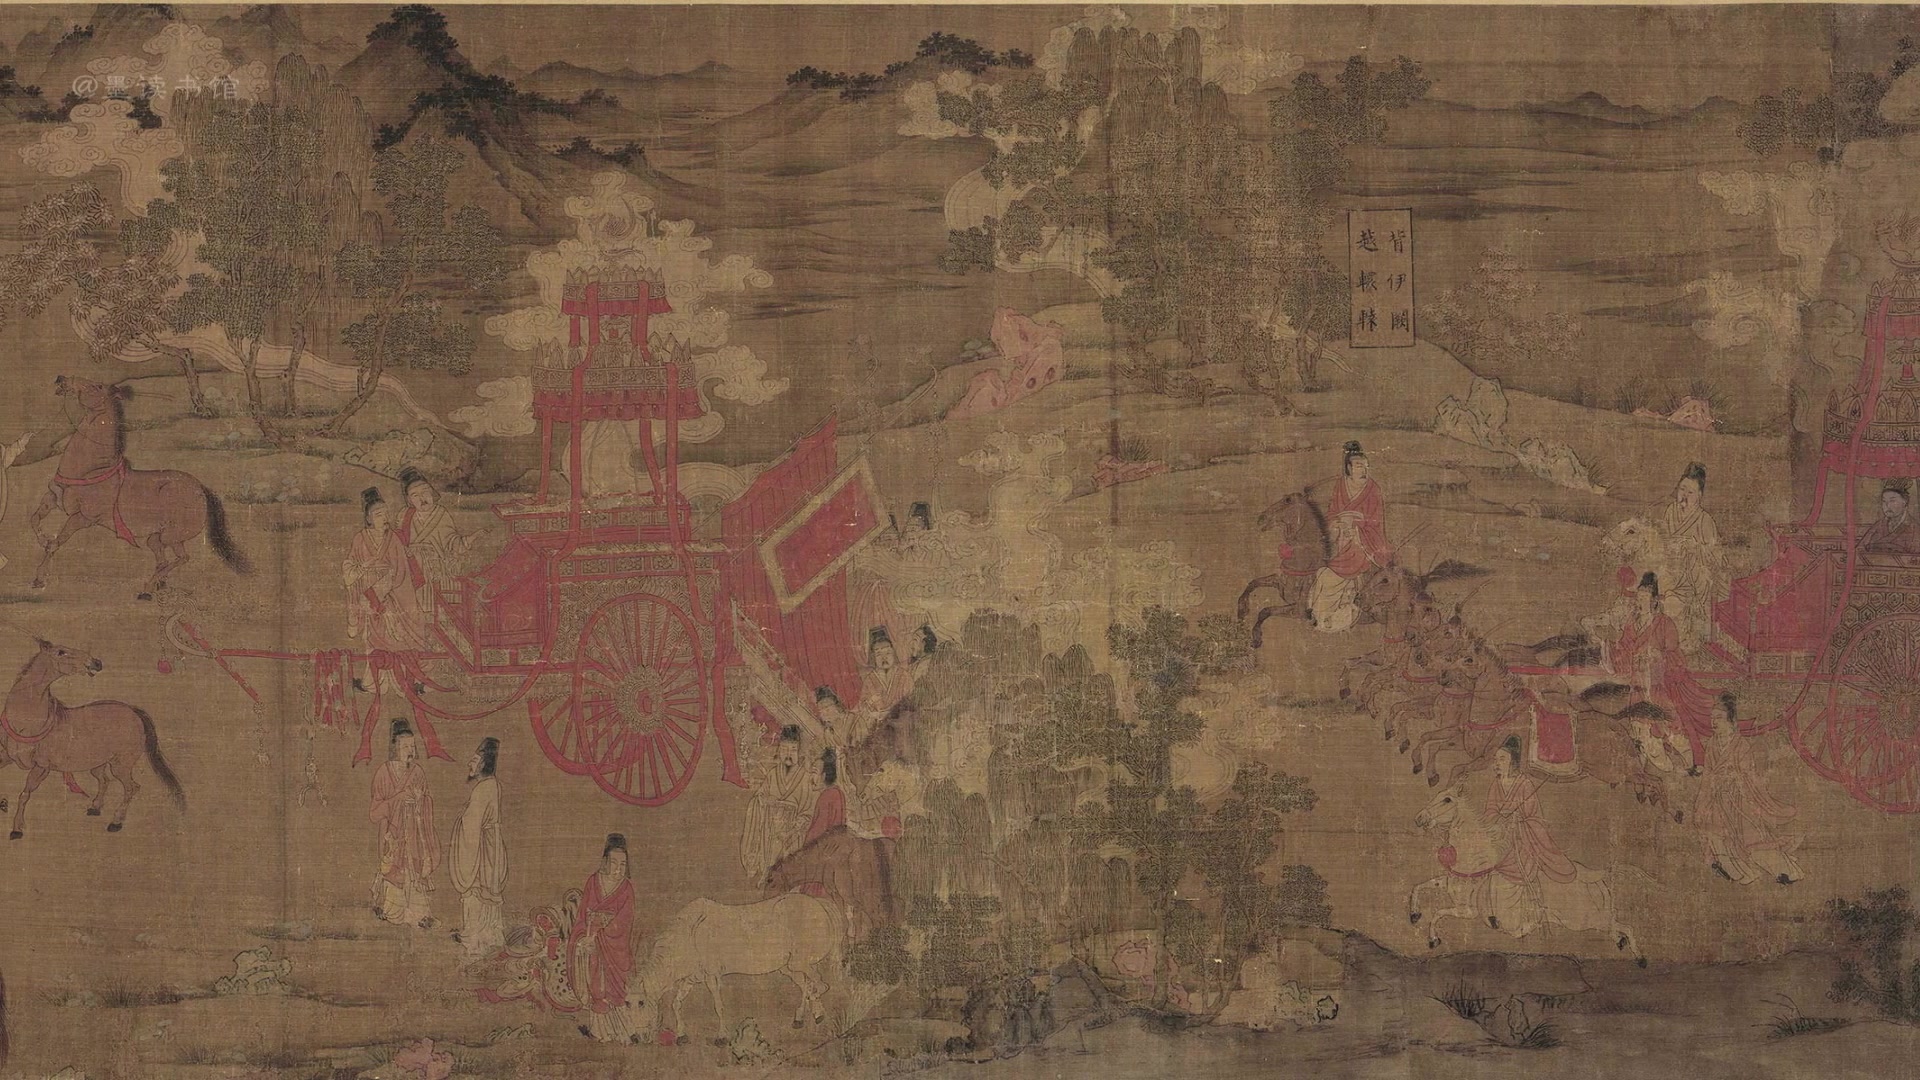 @墨读书馆
背伊阙
越轘辕